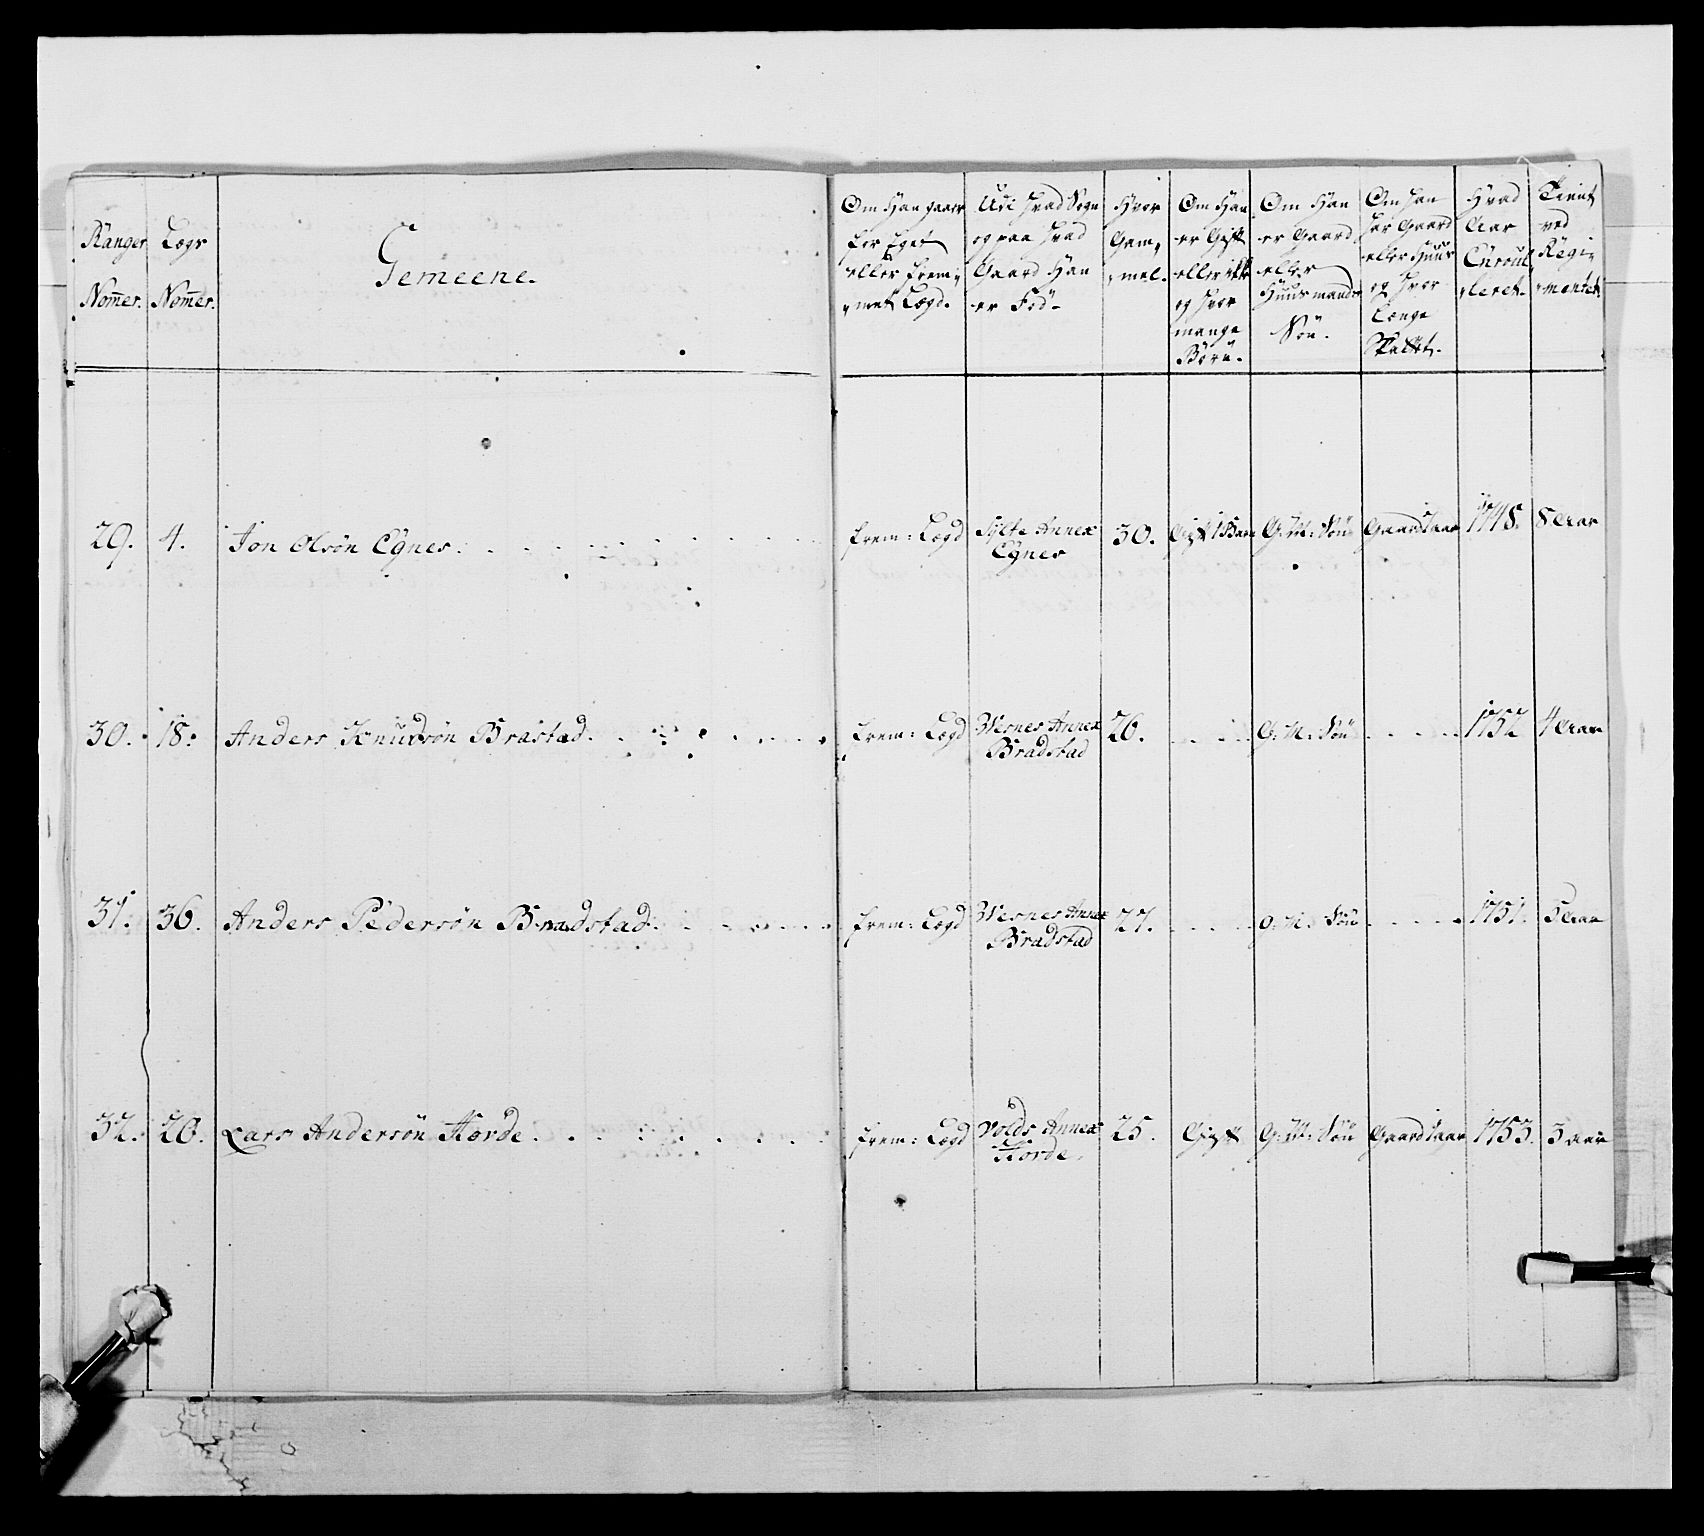 Ranger Nomer.
Lægs Nomer.
Gemeene.
Om Han gaaer for Eget eller Frem- met Lægd.
Udi hvad Sogn og paa hvad Gaard Han er Föd
Hvor Gam- mel.
Om Han er Gift eller ikke og hvor mange Börn.
Om Han er Gaard eller Huusmands Sön.
Om han har Gaard eller Huus og hvor Længe
Hvad Aar Enroul- leret.
Tient ved Regi- mentet.
29. 4. Jon Olsön Egnes. frem: Lægd Sylte Annex Egnes 30. Gift 1 Barn G: M: Sön Gaard 1 aar 1748. 8 Aar
30. 18. Anders Knudsön Brastad. frem: Lægd Wesnes Annex Bradstad 26. G: M: Sön 1752 4 Aar
31. 36. Anders Pedersön Bradstad. frem: Lægd Wesnes Annex Bradstad 27. G. M. Sön 1751. 5 Aar
32. 20. Lars Andersön Horde. frem: Lægd Volds Annex Horde. 25. Gift G: M: Sön Gaard 1 aar 1753. 3 aar